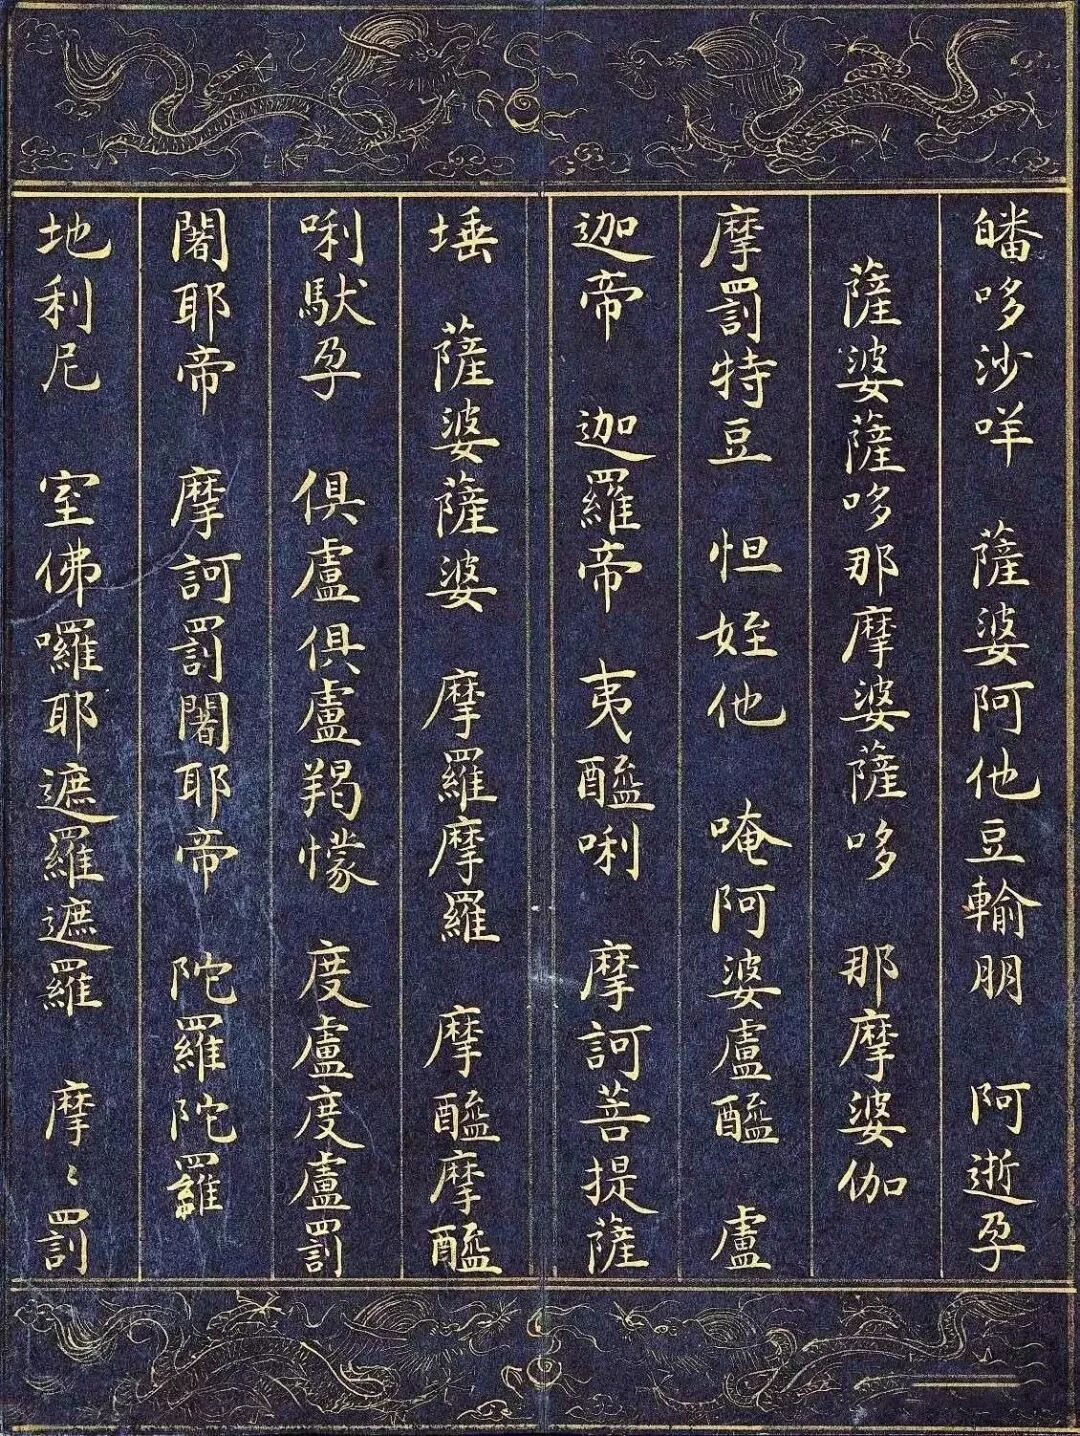 皤哆沙咩 薩婆阿他豆輸朋 阿逝孕
薩婆薩哆那摩婆薩哆 那摩婆伽
摩罰特豆 怛姪他 唵阿婆盧醯 盧
迦帝 迦羅帝 夷醯唎 摩訶菩提薩
埵 薩婆薩婆 摩羅摩羅 摩醯摩醯
唎馱孕 俱盧俱盧羯懞 度盧度盧罰
闍耶帝 摩訶罰闍耶帝 陀羅陀羅
地利尼 室佛囉耶遮羅遮羅 摩〻罰